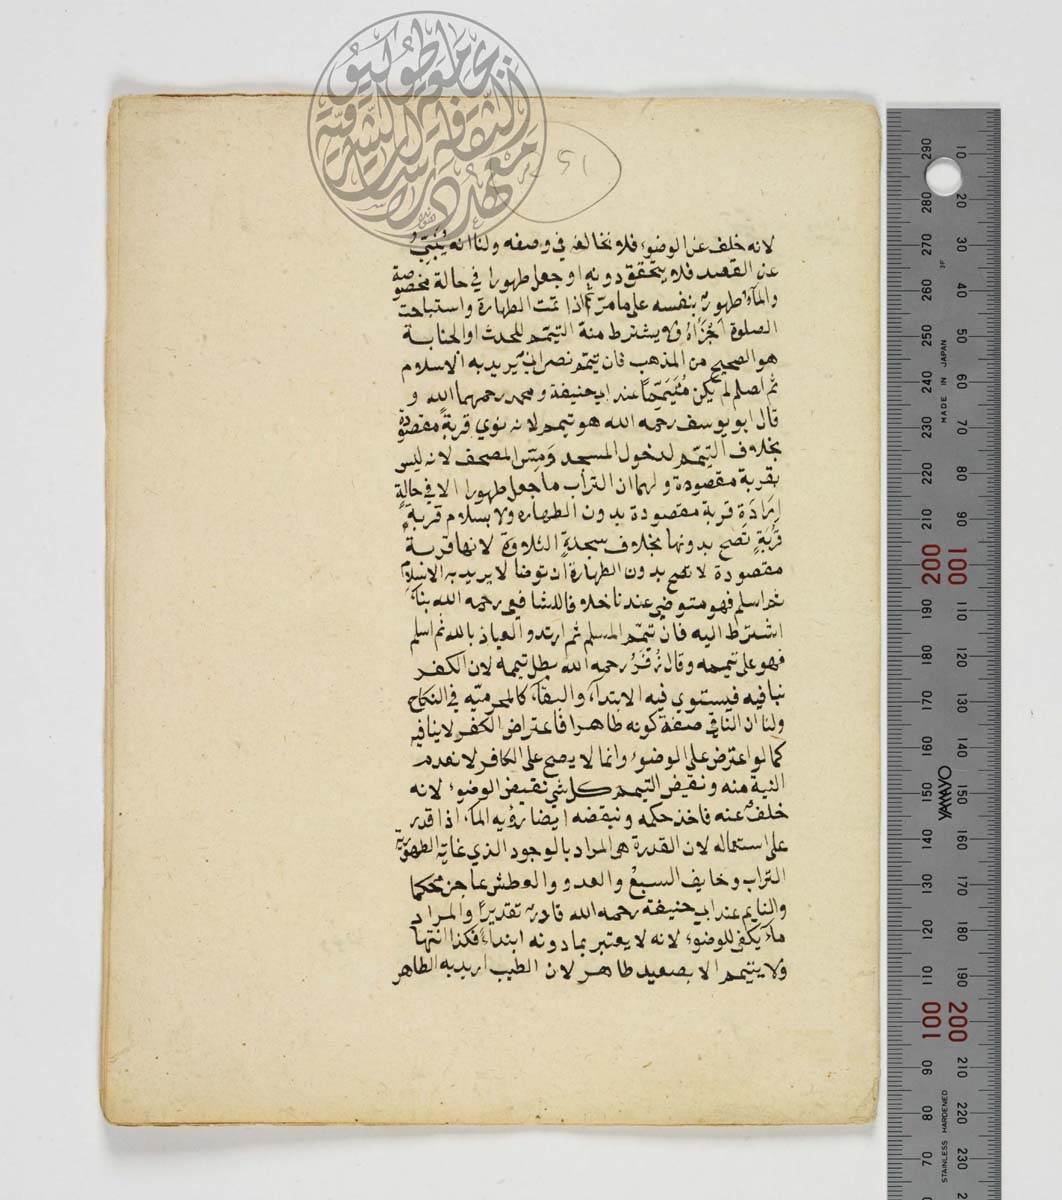 جامعة طوكيو
معهد دراسات الثقافة الشرقية
١٥
لانه خلف عن الوضوء فلا يخالفه في وصفه ولنا انه يُنْبِئُ
عن القصد فلا يتحقق دونه او جعل طهورا في حالة مخصوصة
والمآء طهور بنفسه على ما مرّ ثم اذا تمت الطهارة واستباحت
الصلوة اَجْزَأهُ ولا يشترط منة التيمّم للحدث او الجنابة
هو الصحيح من المذهب فان تيمّم نصراني يريد به الاسلام
ثم اصلم لم يكن مُتَيَمِّمًا عند ابي حنيفة ومحمد رحمهما الله و
قال ابو يوسف رحمه الله هو تيمم لانه نوي قربة مقصودة
بخلاف التيمّم لدخول المسجد ومسّ المصحف لانه ليس
بقربة مقصودة ولهما ان التراب ما جعل طهورا الا في حالة
اِرَادَةِ قربة مقصودة بدون الطهاره ولا بسلام قربة
قُرْبَةٍ تصح بدونها بخلاف سجدة التلاوة لانها قربة
مقصودة لا تصح بدون الطهارة ان توضا لا يريد به الاسلام
ثم اسلم فهو متوضي عندنا خلا فاللشافعي رحمه الله بناء
اشترط اليه فان تيمّم المسلم ثم ارتد والعياذ بالله ثم اسلم
فهو على تيممه وقال زُفَرُ رحمه الله بطل تيممه لان الكفر
ينافيه فيستوي فيه الابتدآء والبقآء كالمحرميّه في النكاح
ولنا ان النافي صفة كونه طاهرا فاعتراض الكفر لا ينافيه
كما لو اعترض على الوضوء وانما لا يصح على الكافر لانعدم
النية منه ونقيض التيمم كل شي نقيض الوضوء لانه
خلف عنه فاخذ حكمه وينقضه ايضا رؤيه المآء اذا قدر
على استماله لان القدرة هي المراد بالوجود الذي غاته الطهورية
التراب وخايف السبع والعدو والعطش عاجز حكما
والنايم عند ابي حنيفة رحمه الله قادر تقديرا والمراد
مآء يكفى للوضوء لانه لا يعتبر بما دونه ابتداء فكذا انتها
ولا يتيمم الا بصعيد طاهر لان الطيب اريد به الطاهر
290
280
270
260
250
240
230
220
210
200
190
180
170
160
150
140
130
120
110
100
90
80
70
10
20
30
40
50
60
70
80
90
100
110
120
130
140
150
160
170
180
190
200
210
220
230
MADE IN JAPAN
YAMAYO
STAINLESS HARDENED